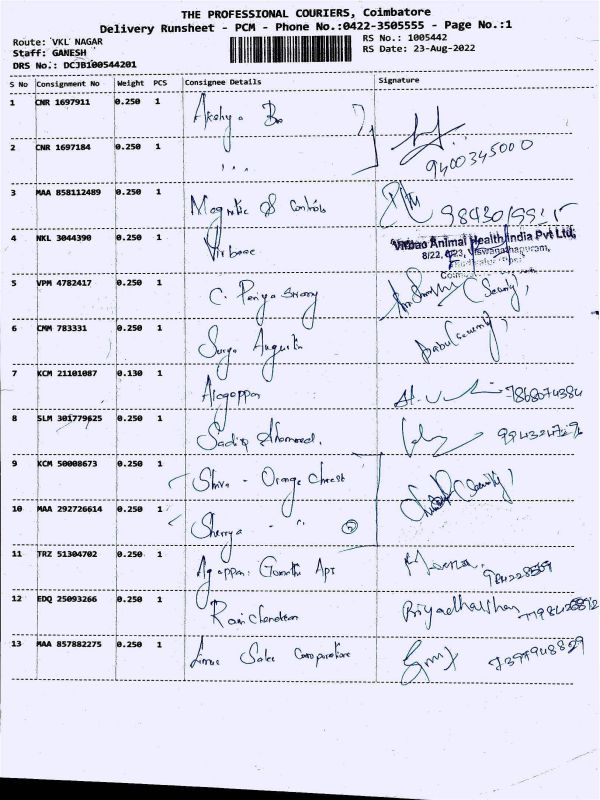 THE PROFESSIONAL COURIERS, Coimbatore
Delivery Runsheet - PCM - Phone No.:0422-3505555 - Page No.:1
Route: VKL NAGAR
Staff: GANESH
DRS No.: DCJB100544201
RS No.: 1005442
RS Date: 23-Aug-2022
S No Consignment No Weight PCS Consignee Details Signature
1 CNR 1697911 0.250 1 Akshya
2 CNR 1697184 0.250 1 " 9400345000
3 MAA 858112489 0.250 1 Magnetic & Controls
4 NKL 3044390 0.250 1 Virbac
Virbac Animal Health India Pvt Ltd.
8/22, 423, Viswanathapuram,
5 VPM 4782417 0.250 1 C. Periya Swamy (Security)
6 CMM 783331 0.250 1 Surya Augustin Babu (Security)
7 KCM 21101087 0.130 1 Alagappan 7868074384
8 SLM 301779625 0.250 1 Sadiq Ahamed.
9 KCM 50008673 0.250 1 Shiva - Orange Chrest (Security)
10 MAA 292726614 0.250 1 Sherya - " 5
11 TRZ 51304702 0.250 1 Apt
12 EDQ 25093266 0.250 1 Ravichandran Priyadharshan
13 MAA 857882275 0.250 1 Sales Corporation 7397948829